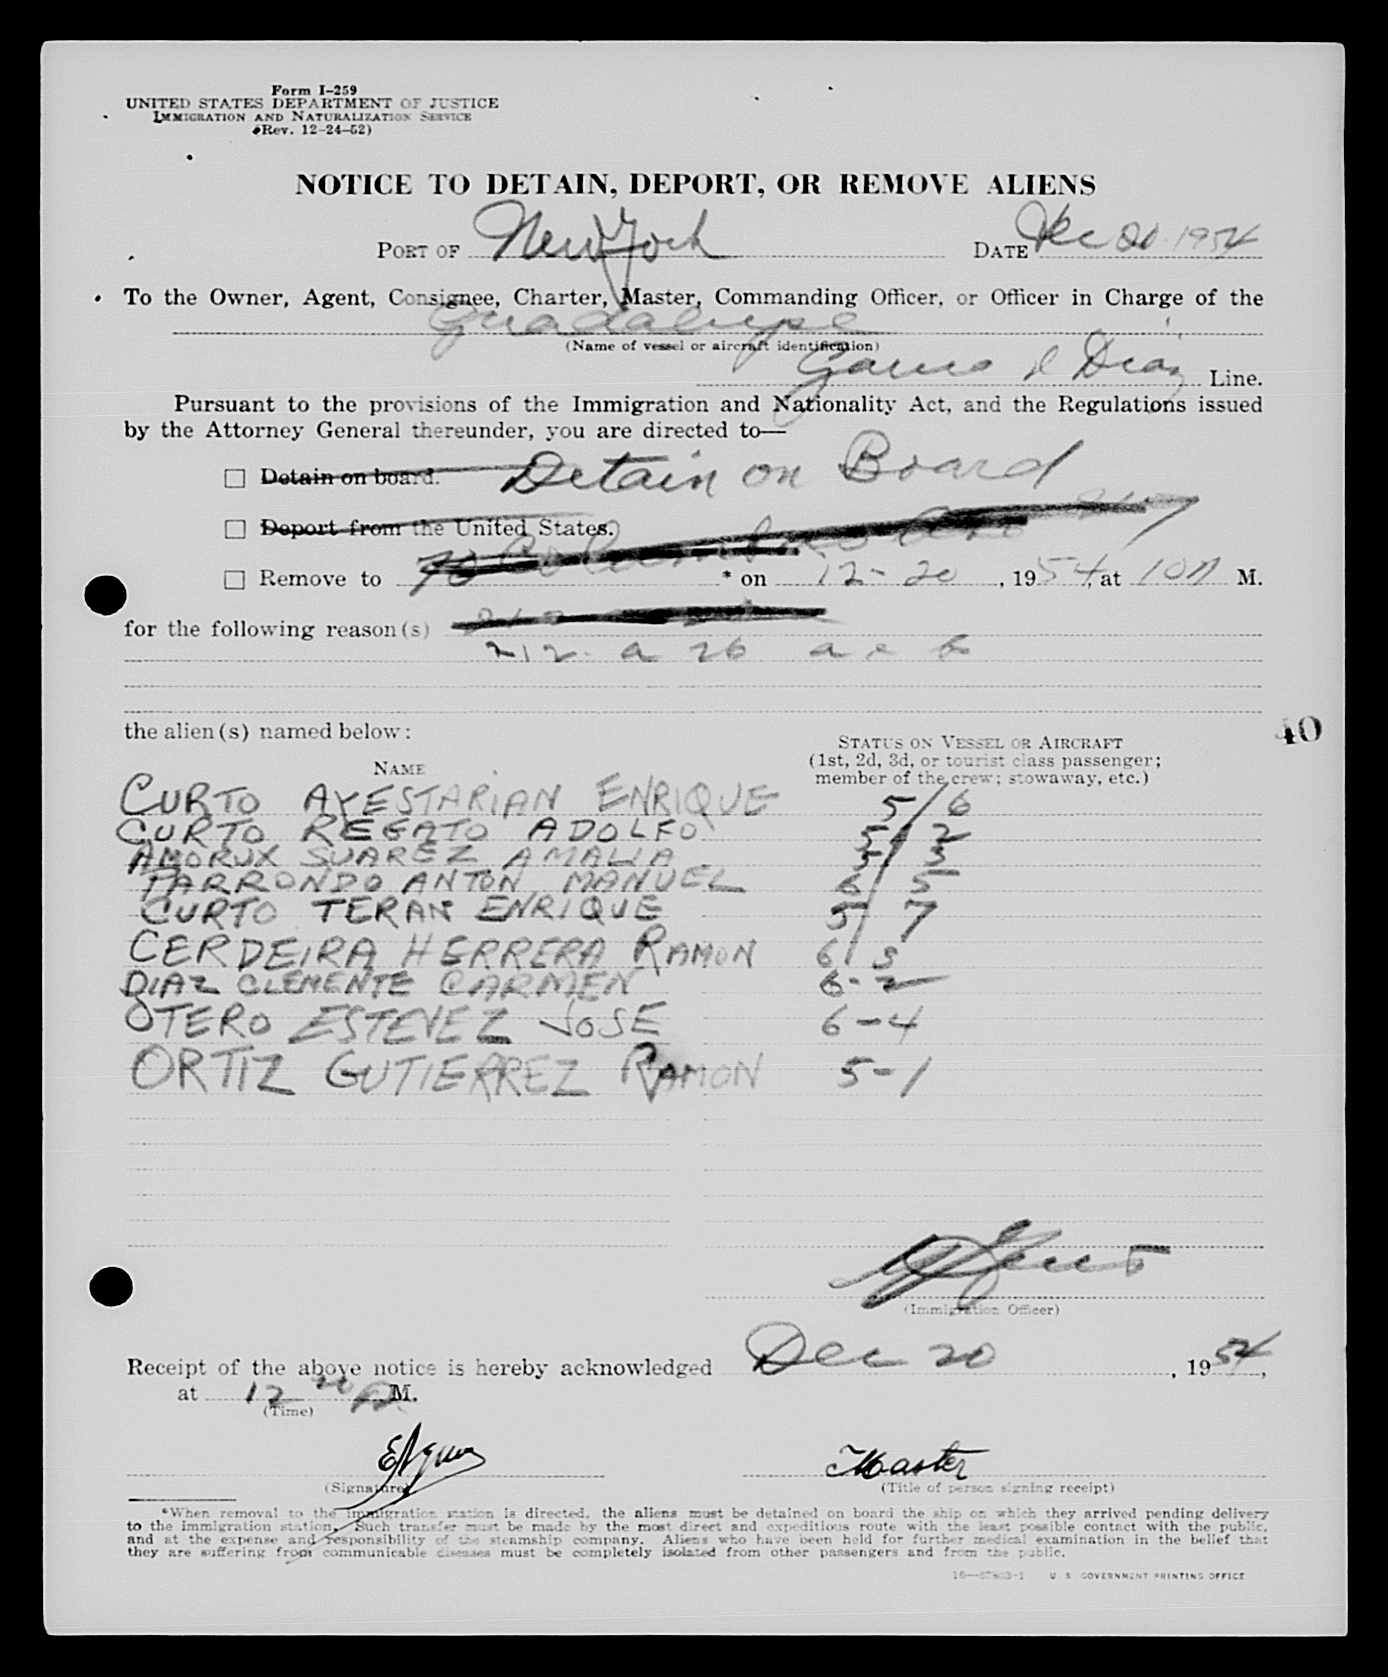 Form I-259
UNITED STATES DEPARTMENT OF JUSTICE
IMMIGRATION AND NATURALIZATION SERVICE
(Rev. 12-24-52)
NOTICE TO DETAIN, DEPORT, OR REMOVE ALIENS
PORT OF New York DATE Dec 20 1954
To the Owner, Agent, Consignee, Charter, Master, Commanding Officer, or Officer in Charge of the
Guadalupe
(Name of vessel or aircraft identification)
Garcia & Diaz Line.
Pursuant to the provisions of the Immigration and Nationality Act, and the Regulations issued
by the Attorney General thereunder, you are directed to—
☐ Detain on board. Detain on Board
☐ Deport from the United States.
☐ Remove to * on 12-20, 1954, at 10 M.
for the following reason(s)
212. a 26
the alien(s) named below:
40
STATUS ON VESSEL OR AIRCRAFT
(1st, 2d, 3d, or tourist class passenger;
member of the crew; stowaway, etc.)
NAME
CURTO AYESTARIAN ENRIQUE 5/6
CURTO REGATO ADOLFO 5/2
AMORUX SUAREZ AMALIA 5/3
TARRONDO ANTON MANUEL 6/5
CURTO TERAN ENRIQUE 5/7
CERDEIRA HERRERA RAMON 6/3
DIAZ CLEMENTE CARMEN 6-2
OTERO ESTEVEZ JOSE 6-4
ORTIZ GUTIERREZ RAMON 5-1
(Immigration Officer)
Receipt of the above notice is hereby acknowledged Dec 20, 1954,
at 12 20 M.
(Time)
Master
(Signature) (Title of person signing receipt)
*When removal to the immigration station is directed, the aliens must be detained on board the ship on which they arrived pending delivery
to the immigration station. Such transfer must be made by the most direct and expeditious route with the least possible contact with the public,
and at the expense and responsibility of the steamship company. Aliens who have been held for further medical examination in the belief that
they are suffering from communicable diseases must be completely isolated from other passengers and from the public.
U. S. GOVERNMENT PRINTING OFFICE